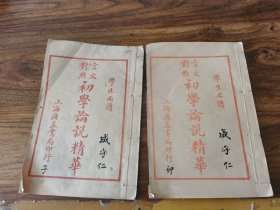 學生必讀
言文
對照
初學論說精華
上海廣文書局印行
子
成守仁
學生必讀
言文
對照
初學論說精華
上海廣文書局印行
卯
成守仁